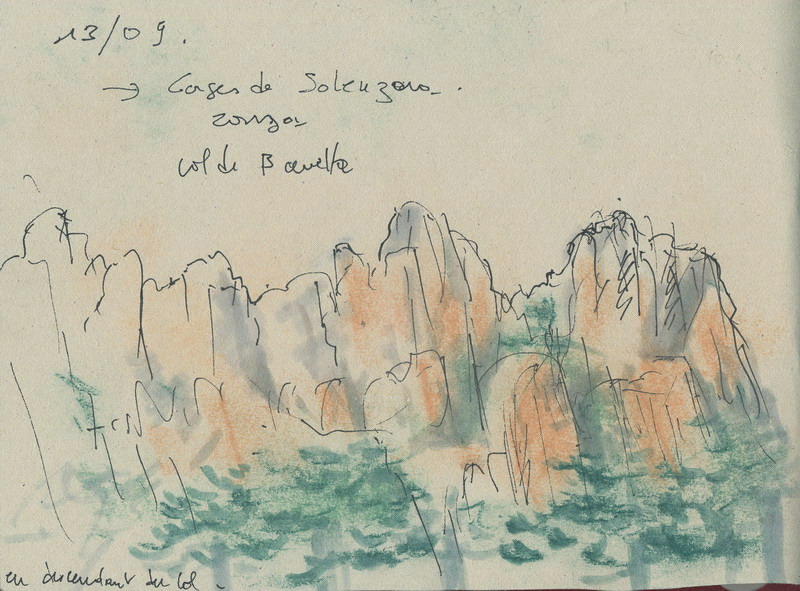 13/09.
→ Gorges de Solenzara.
zonza
col de Bavella
en descendant du col.